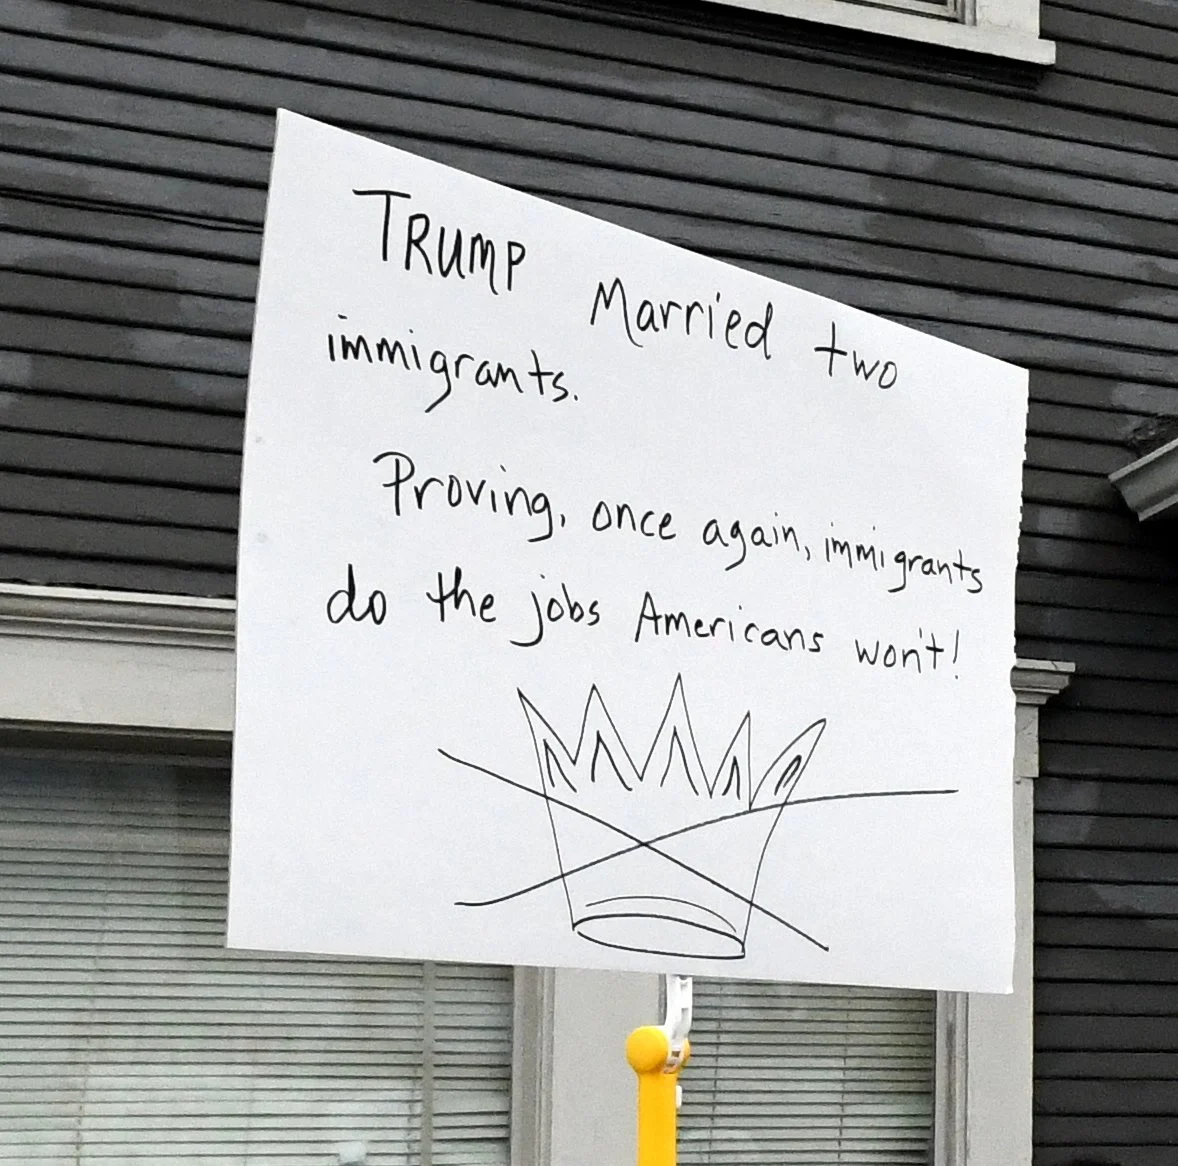 TRUMP Married two
immigrants.
Proving, once again, immigrants
do the jobs Americans won't!